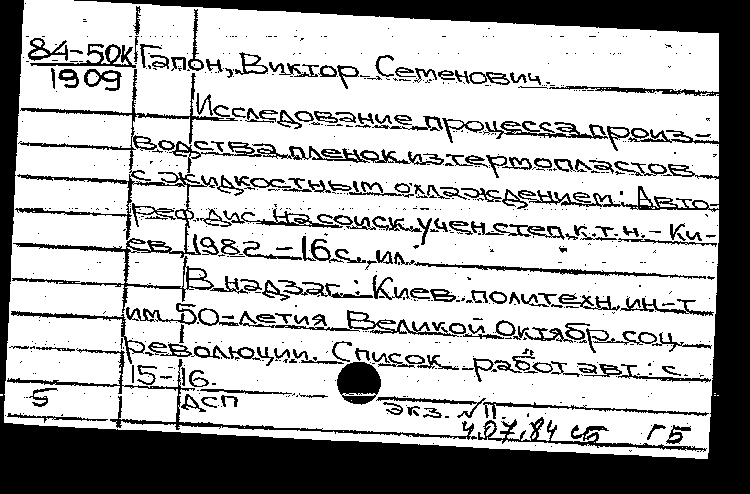 84-50К Гапон, Виктор Семенович.
1909
Исследование процесса произ-
водства пленок из термопластов
с жидкостным охлаждением: Авто-
реф. дис. на соиск. учен. степ. к.т.н. - Ки-
ев, 1982. - 16 с., ил.
В надзаг.: Киев. политехн. ин-т
им. 50-летия Великой Октябр. соц.
революции. Список работ авт.: с.
15-16.
5 ДСП экз. № 11.
4.07.84 ГБ